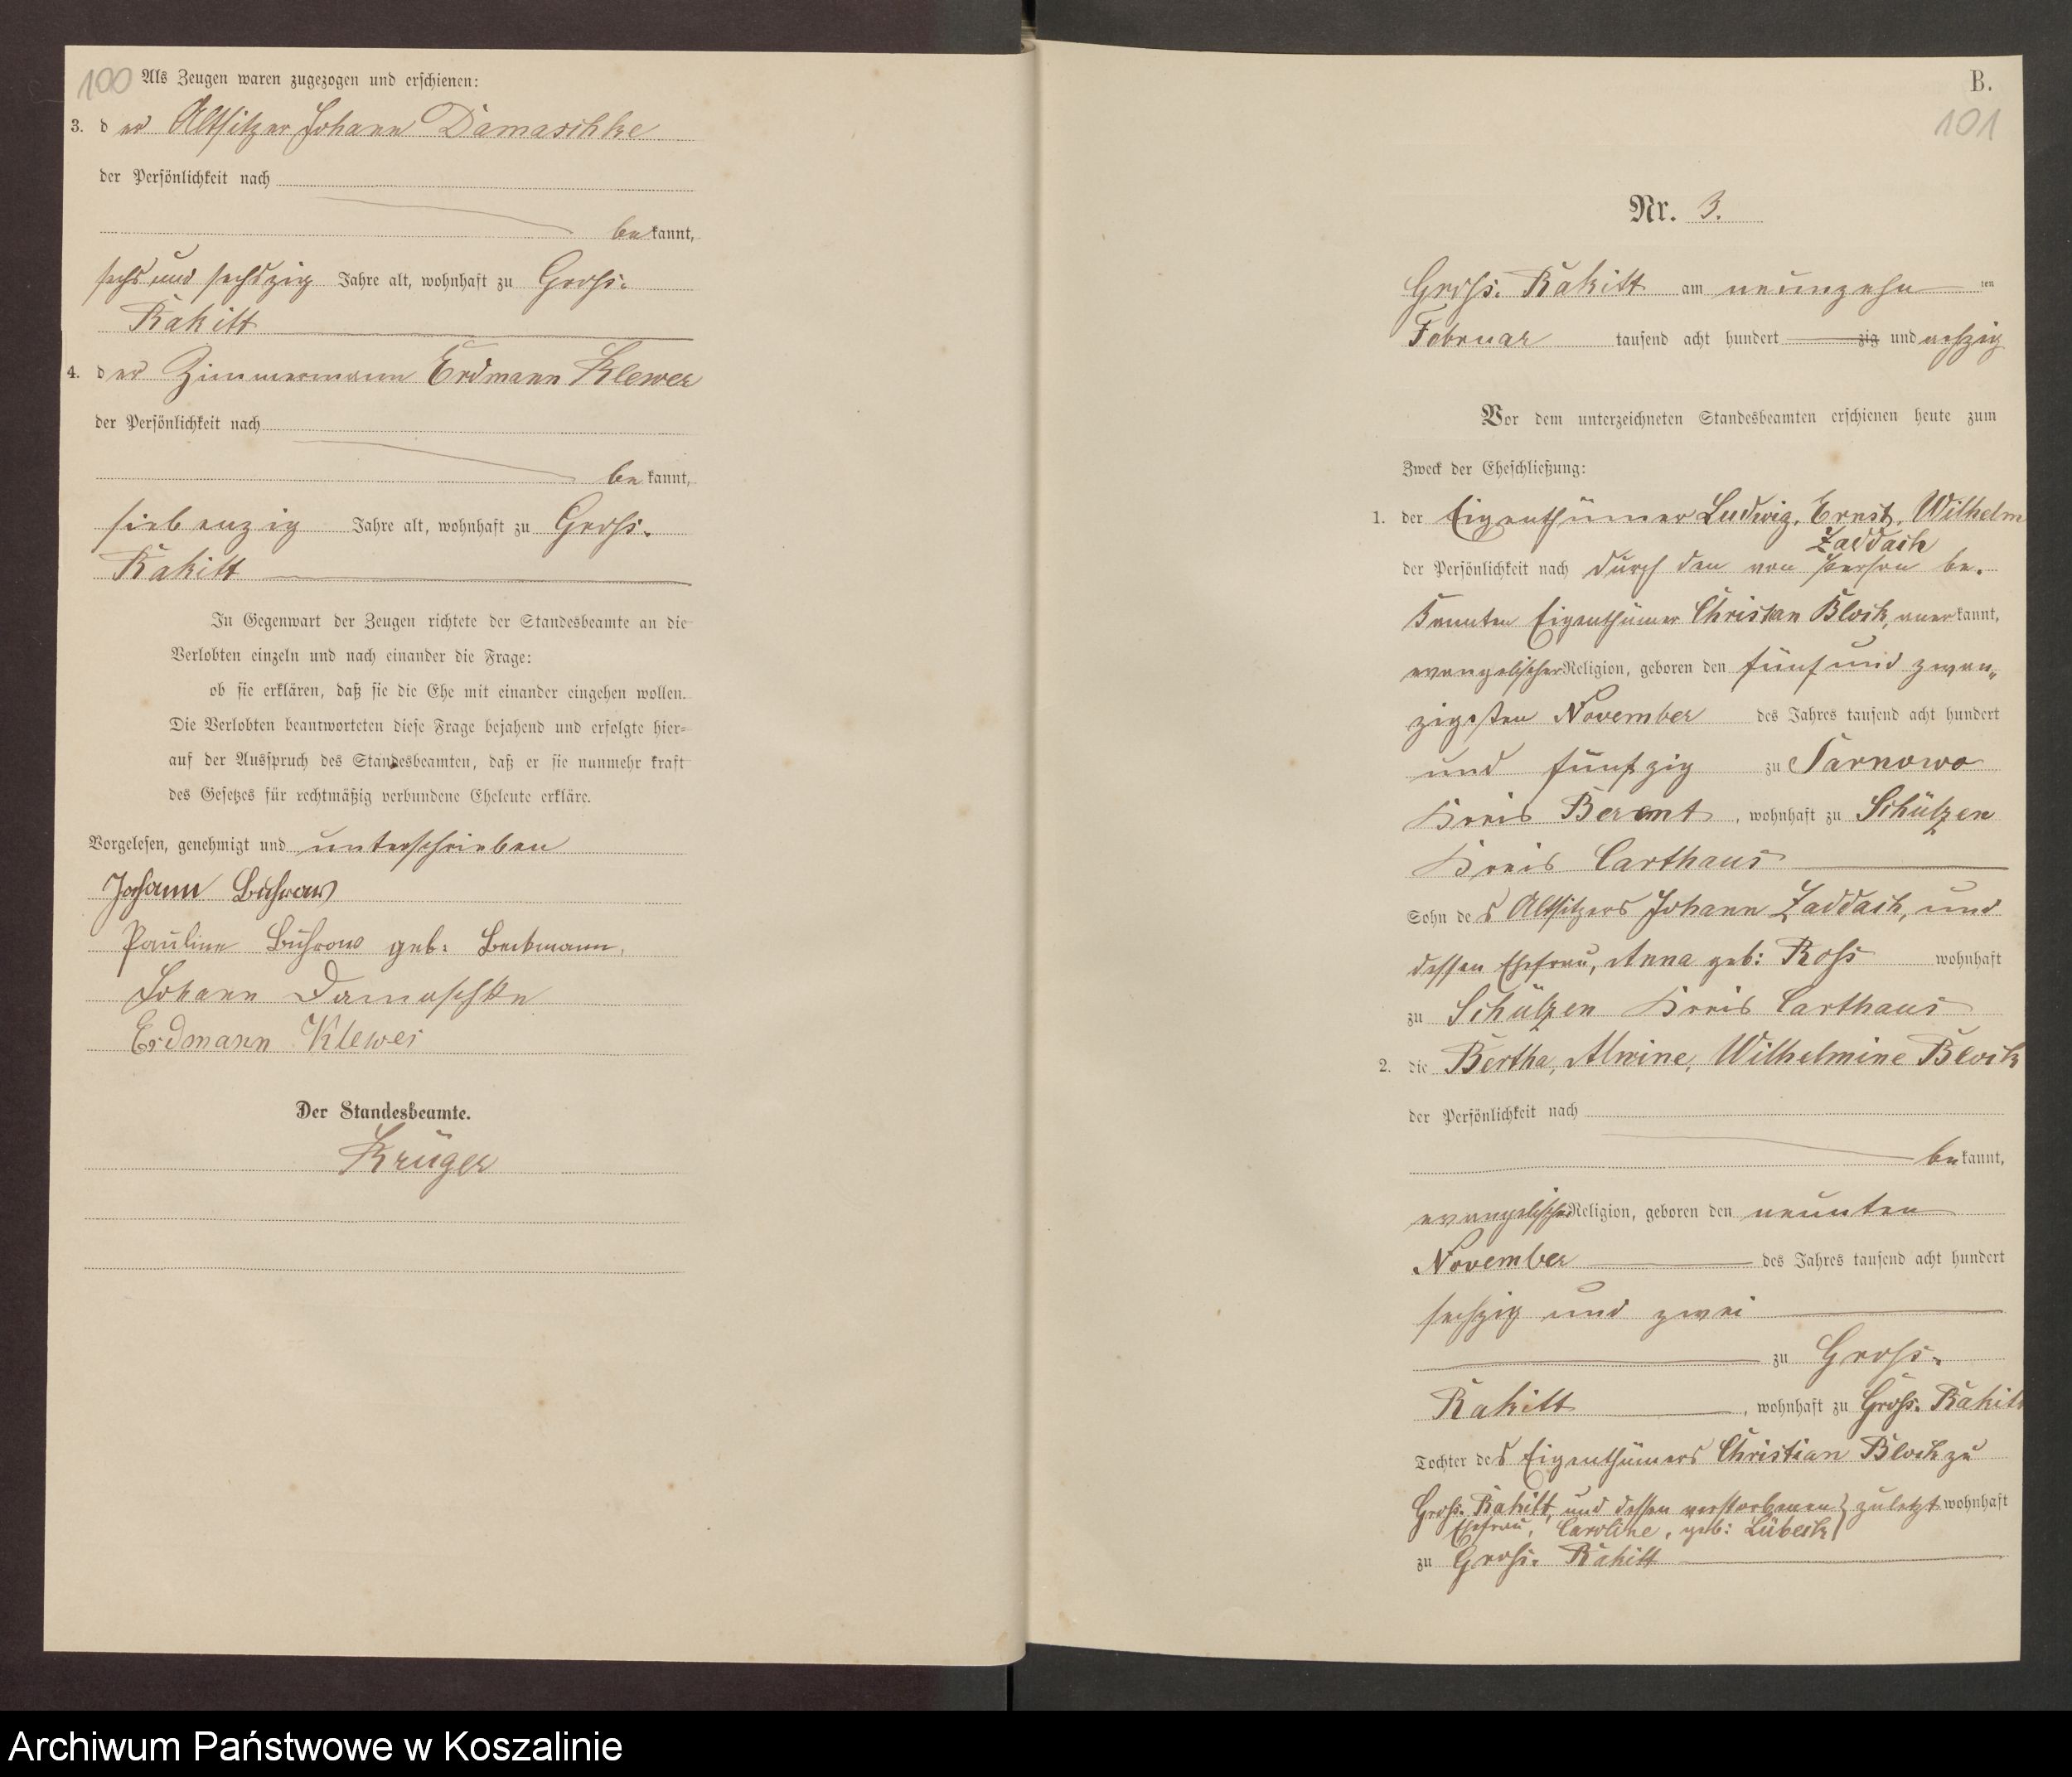 100 Als Zeugen waren zugezogen und erschienen:
3. der Altsitzer Johann Damaschke
der Persönlichkeit nach
bekannt,
sechs und sechszig Jahre alt, wohnhaft zu Gross-
Rakitt
4. der Zimmermann Erdmann Klewer
der Persönlichkeit nach
bekannt,
siebenzig Jahre alt, wohnhaft zu Gross-
Rakitt
In Gegenwart der Zeugen richtete der Standesbeamte an die
Verlobten einzeln und nach einander die Frage:
ob sie erklären, daß sie die Ehe mit einander eingehen wollen.
Die Verlobten beantworteten diese Frage bejahend und erfolgte hier-
auf der Ausspruch des Standesbeamten, daß er sie nunmehr kraft
des Gesetzes für rechtmäßig verbundene Eheleute erkläre.
Vorgelesen, genehmigt und unterschrieben
Johann Buhrow
Pauline Buhrow geb: Beckmann.
Johann Damaschke
Erdmann Klewer
Der Standesbeamte.
Krüger
B.
101
Nr. 3.
Gross-Rakitt am neunzehnten
Februar tausend acht hundert zig und achtzig
Vor dem unterzeichneten Standesbeamten erschienen heute zum
Zweck der Eheschließung:
1. der Eigenthümer Ludwig, Ernst, Wilhelm
Zaddach
der Persönlichkeit nach durch den von Person be-
kannten Eigenthümer Christian Block, anerkannt,
evangelischer Religion, geboren den fünf und zwan-
zigsten November des Jahres tausend acht hundert
und fünfzig zu Tarnowo
Kreis Berent, wohnhaft zu Schülzen
Kreis Carthaus
Sohn des Altsitzers Johann Zaddach, und
dessen Ehefrau, Anna geb: Ross wohnhaft
zu Schülzen Kreis Carthaus
2. die Bertha, Alwine, Wilhelmine Block
der Persönlichkeit nach
bekannt,
evangelischer Religion, geboren den neunten
November des Jahres tausend acht hundert
sechzig und zwei
zu Gross-
Rakitt, wohnhaft zu Gross-Rakitt
Tochter des Eigenthümers Christian Block zu
Gross-Rakitt, und dessen verstorbenen zuletzt wohnhaft
Ehefrau, Caroline, geb: Lübeck
zu Gross-Rakitt
Archiwum Państwowe w Koszalinie